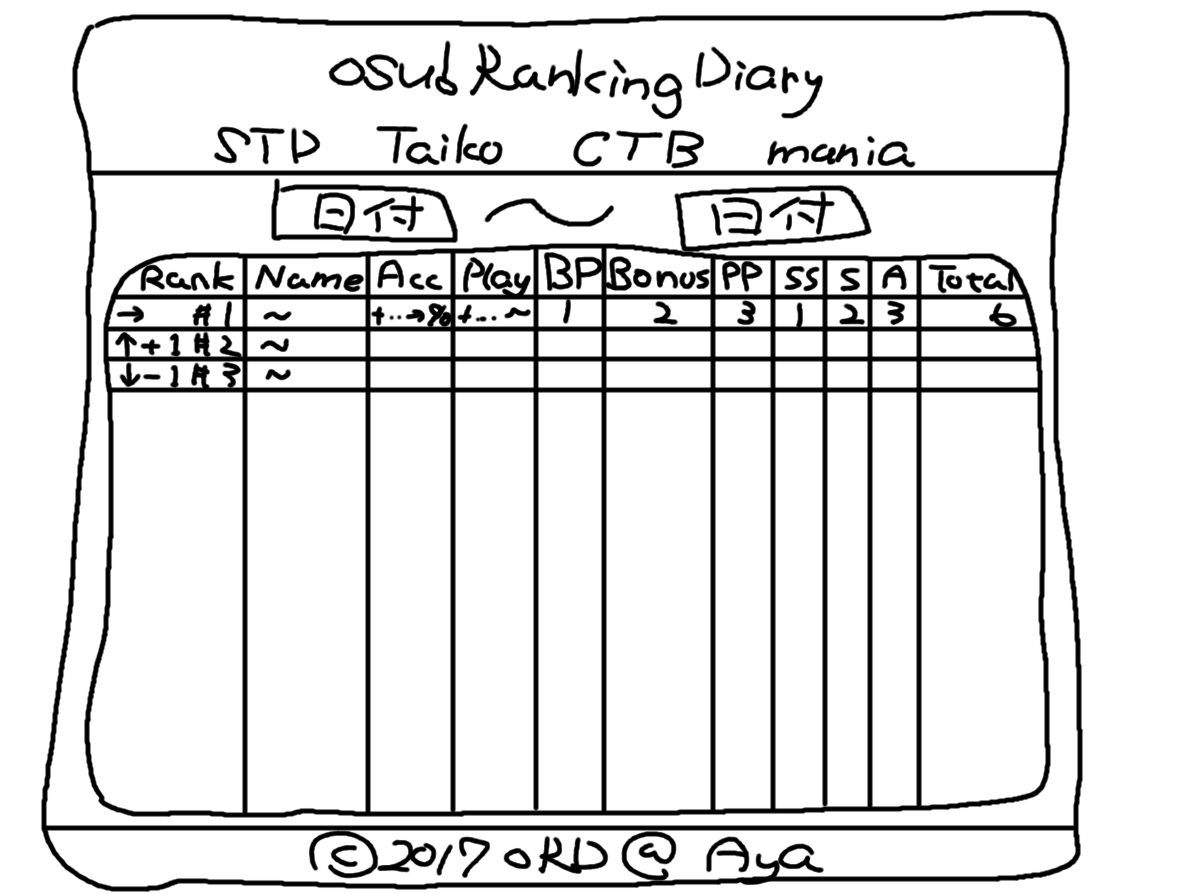 osu! Ranking Diary
STD Taiko CTB mania
日付 ～ 日付
Rank Name Acc Play BP Bonus PP SS S A Total
→ #1 ~ +…→% +…~ 1 2 3 1 2 3 6
↑+1 #2 ~
↓-1 #3 ~
©2017 oRD @ Aya